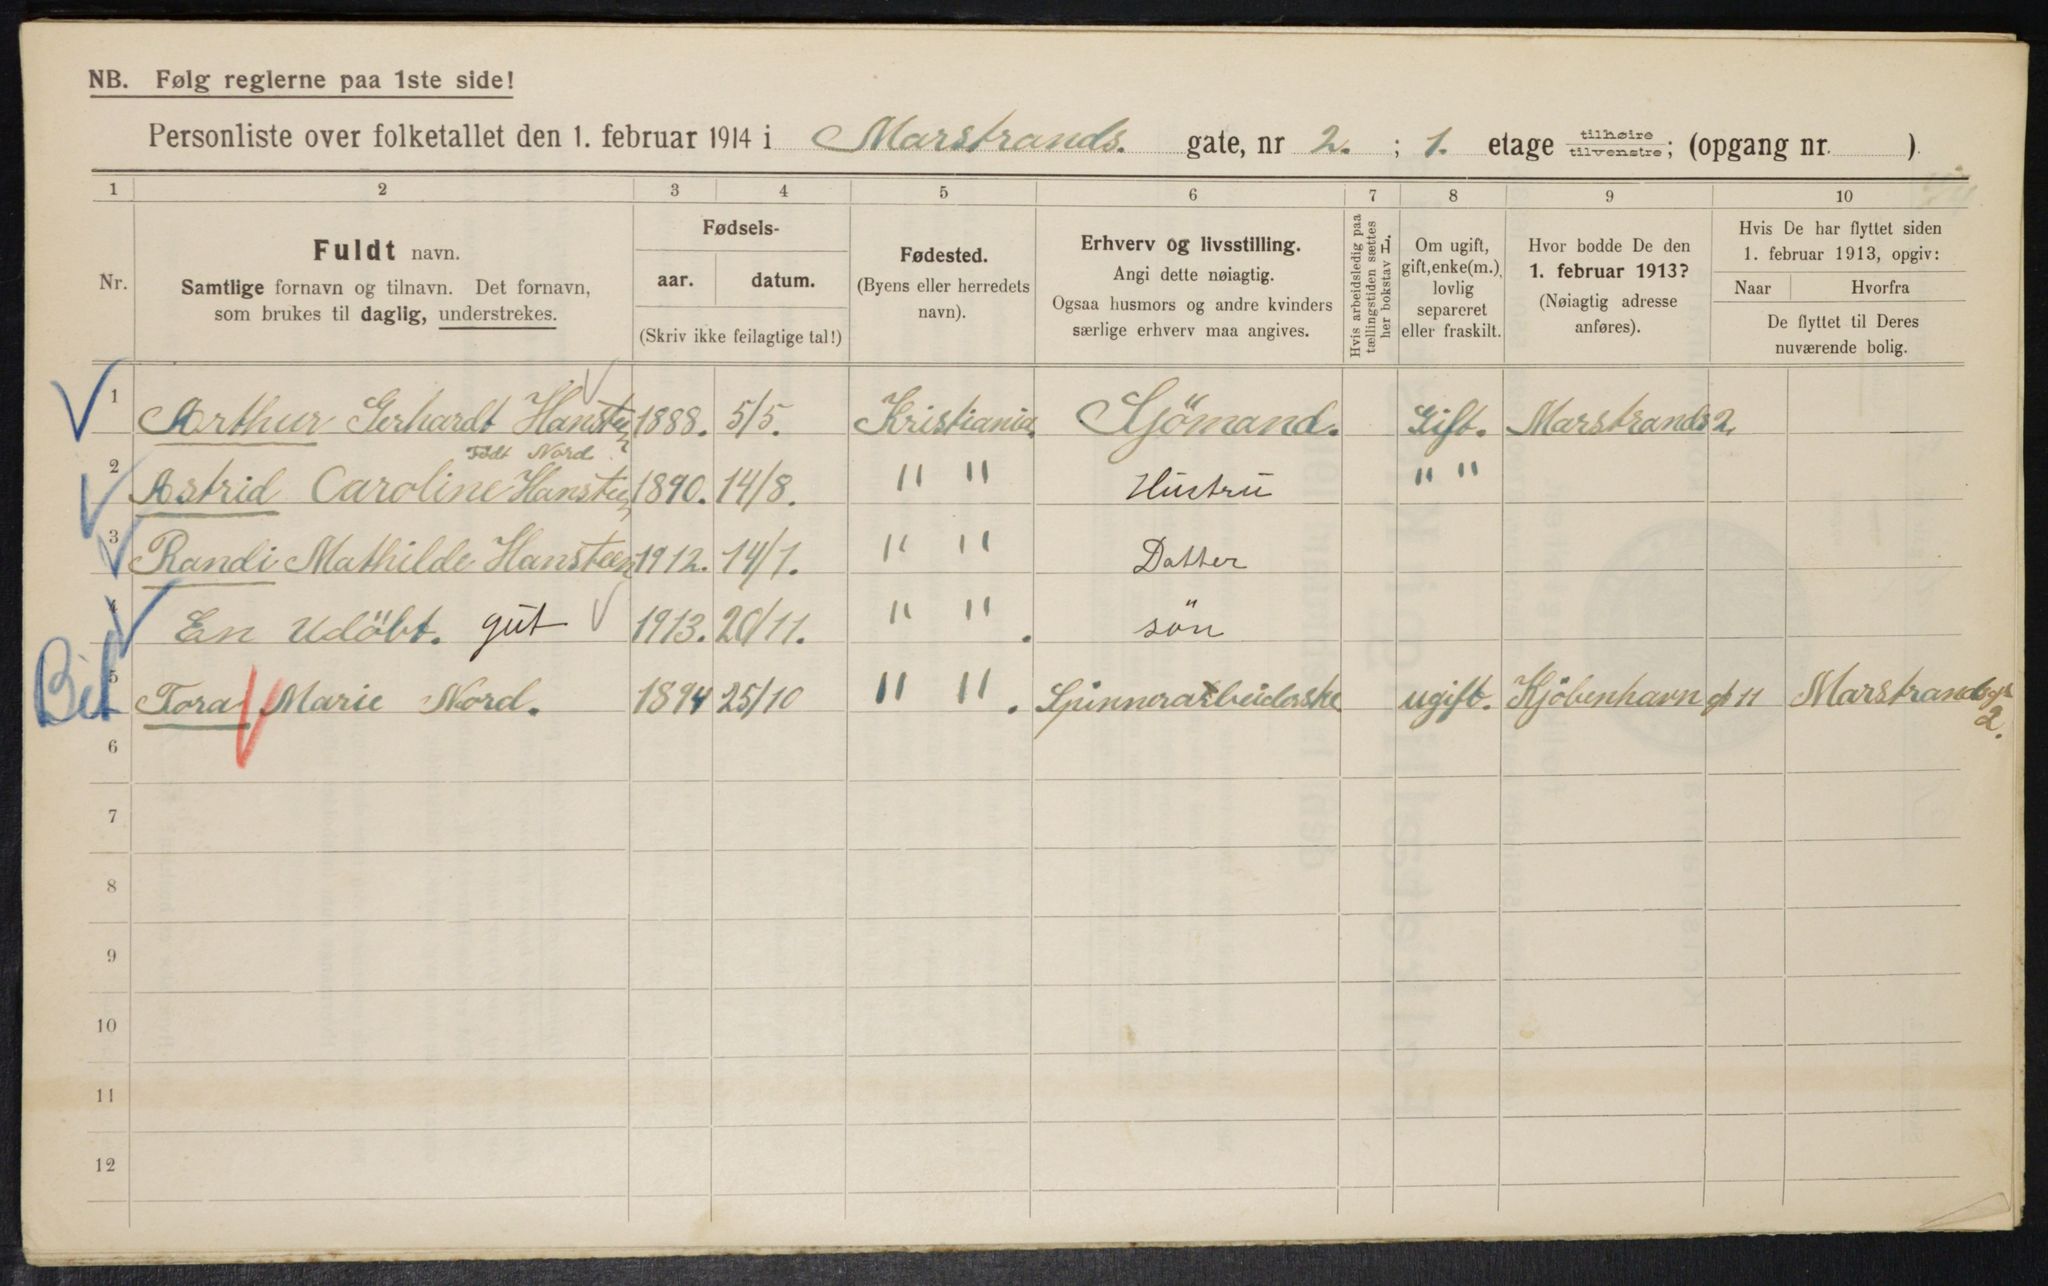 NB. Følg reglerne paa 1ste side!
Personliste over folketallet den 1. februar 1914 i Marstrands. gate, nr 2. ; 1. etage tilhøire/tilvenstre; (opgang nr. ).
1 2 3 4 5 6 7 8 9 10
Nr.
Fuldt navn.
Samtlige fornavn og tilnavn. Det fornavn,
som brukes til daglig, understrekes.
Fødsels-
aar. datum.
(Skriv ikke feilagtige tal!)
Fødested.
(Byens eller herredets
navn).
Erhverv og livsstilling.
Angi dette nøiagtig.
Ogsaa husmors og andre kvinders
særlige erhverv maa angives.
Hvis arbeidsledig paa
tællingstiden sættes
her bokstav L.
Om ugift,
gift, enke(m.),
lovlig
separeret
eller fraskilt.
Hvor bodde De den
1. februar 1913?
(Nøiagtig adresse
anføres).
Hvis De har flyttet siden
1. februar 1913, opgiv:
Naar Hvorfra
De flyttet til Deres
nuværende bolig.
1 Arthur Gerhardt Hansteen 1888. 5/5. Kristiania. Sjömand. Gift. Marstrands 2.
Födt Nord
2 Astrid Caroline Hansteen 1890. 14/8. " " Hustru " "
3 Randi Mathilde Hansteen 1912. 14/1. " " Datter
4 En udöbt. gut 1913. 20/11. " " . sön
Bit 5 Tora Marie Nord. 1894 25/10 " " . Spinnerarbeiderske ugift. Kjöbenhavn 11 Marstrandsgt
2.
6
7
8
9
10
11
12